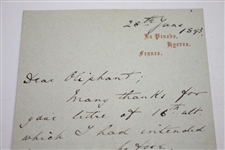 28th June
1893
La Pinède,
Hyères.
France.
Dear Oliphant,
Many thanks for
your letter of 16th ult.
which I had intended